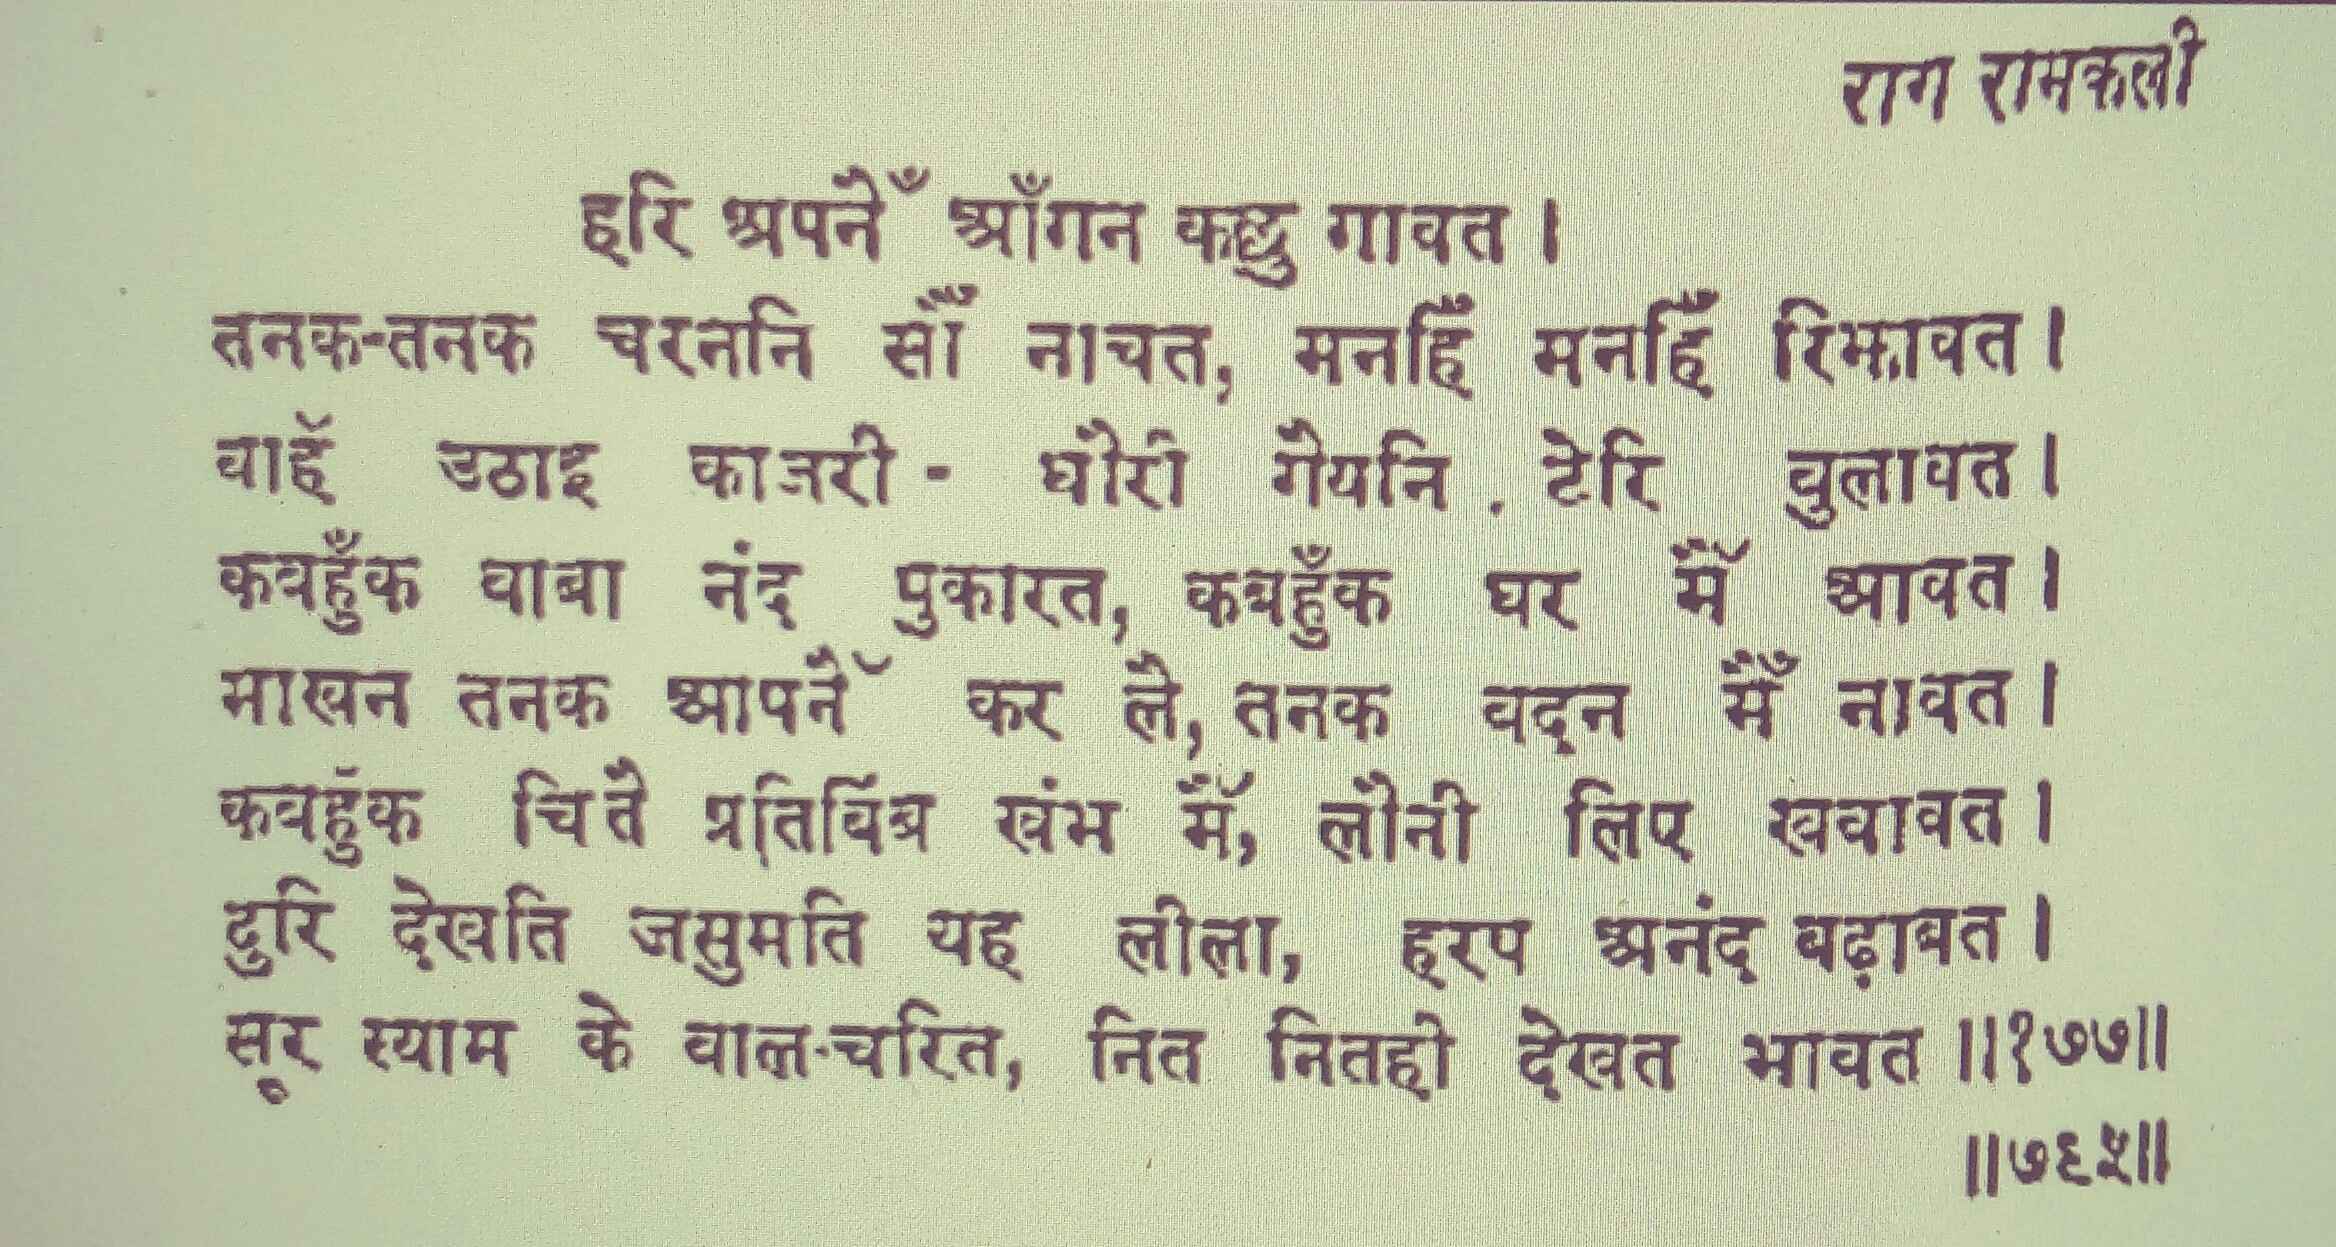 राग रामकली
हरि अपनैँ आँगन कछु गावत ।
तनक-तनक चरननि सौँ नाचत, मनहिँ मनहिँ रिझावत ।
बाहँ उठाइ काजरी - धौरी गैयनि टेरि बुलावत ।
कबहुँक बाबा नंद पुकारत, कबहुँक घर मैँ आवत ।
माखन तनक आपनैँ कर लै, तनक बदन मैँ नावत ।
कबहुँक चितै प्रतिबिंब खंभ मैँ, लौनी लिए खवावत ।
दुरि देखति जसुमति यह लीला, हरष अनंद बढ़ावत ।
सूर स्याम के बाल-चरित, नित नितही देखत भावत ॥१७७॥
॥७६५॥